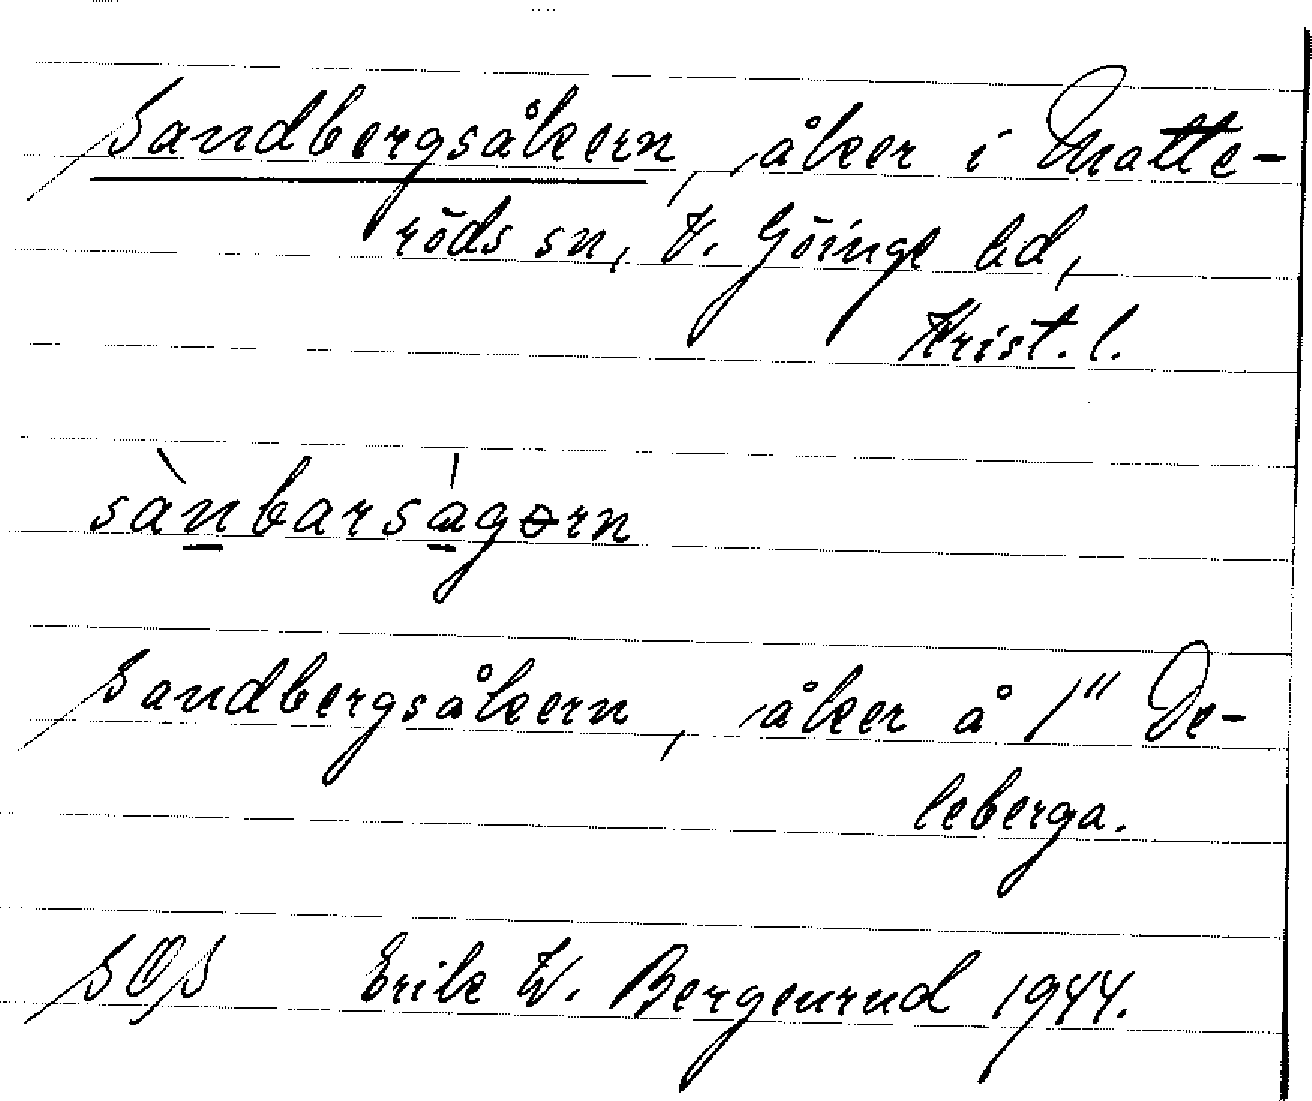 Sandbergsåkern, åker i Matte-
röds sn, V. Göinge hd,
Krist. l.
sànbarságərn
Sandbergsåkern, åker å 1" De-
leberga.
SOS Erik W. Bergenrud 1944.